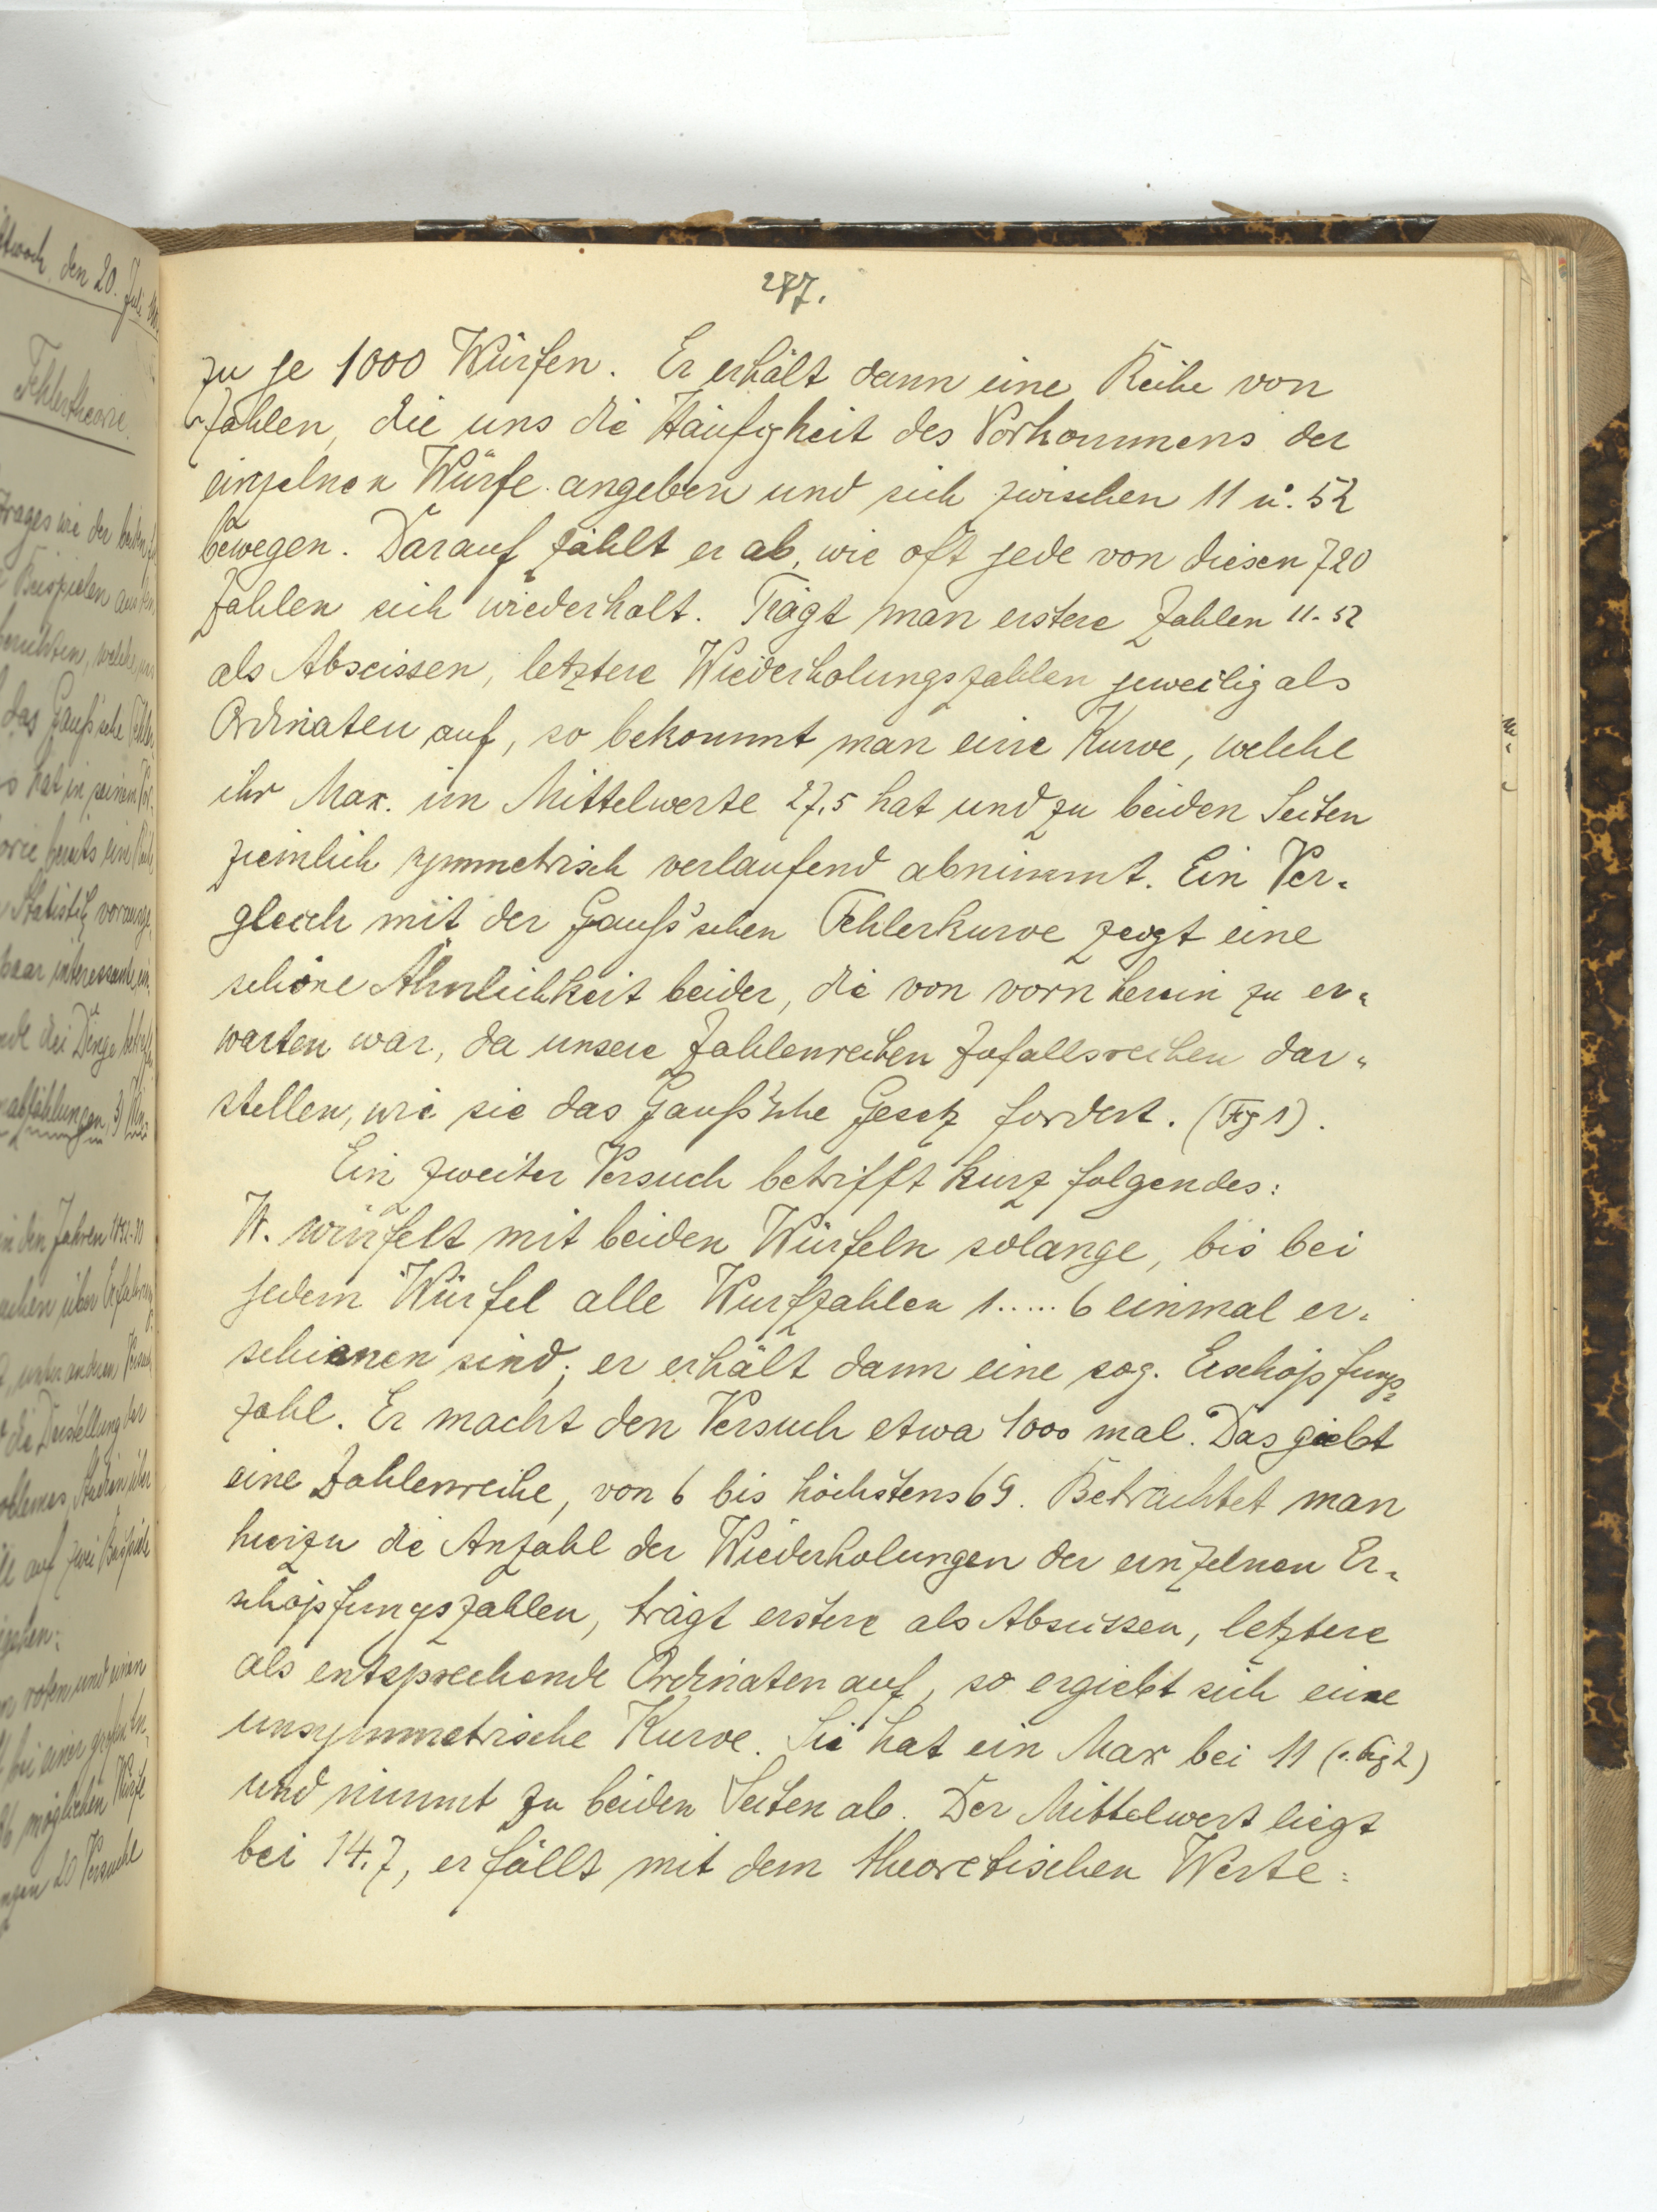 287.
zu je 1000 Würfen. Er erhält dann eine Reihe von
Zahlen, die uns die Häufigkeit des Vorkommens der
einzelnen Würfe angeben und sich zwischen 11 u. 52
bewegen. Darauf zählt er ab, wie oft jede von diesen 720
Zahlen sich wiederholt. Trägt man erstere Zahlen 11-52
als Abscissen, letztere Wiederholungszahlen jeweilig als
Ordinaten auf, so bekommt man eine Kurve, welche
ihr Max. im Mittelwerte 27,5 hat und zu beiden Seiten
ziemlich symmetrisch verlaufend abnimmt. Ein Ver-
gleich mit der Gauß'schen Fehlerkurve zeigt eine
schöne Ähnlichkeit beider, die von vorn herein zu er-
warten war, da unsere Zahlenreihen Zufallsreihen dar-
stellen, wie sie das Gauß'sche Gesetz fordert. (Fig 1).
Ein zweiter Versuch betrifft kurz folgendes:
W. würfelt mit beiden Würfeln solange, bis bei
jedem Würfel alle Wurfzahlen 1.....6 einmal er-
schienen sind; er erhält dann eine sog. Erschöpfungs-
zahl. Er macht den Versuch etwa 1000 mal. Das giebt
eine Zahlenreihe, von 6 bis höchstens 69. Betrachtet man
hierzu die Anzahl der Wiederholungen der einzelnen Er-
schöpfungszahlen, trägt erstere als Abscissen, letztere
als entsprechende Ordinaten auf, so ergiebt sich eine
unsymmetrische Kurve. Sie hat ein Max bei 11 (s. Fig 2)
und nimmt zu beiden Seiten ab. Der Mittelwert liegt
bei 14.7, er fällt mit dem theoretischen Werte:
den 20. Juli
Fehlertheorie.
Beispielen
das Gauß'sche
hat in seinem
bereits
Statistik
die Dinge
in den Jahren
unter anderen
die Darstellung der
auf zwei Beispiele
roten und einen
bei einer großen
möglichen Würfe
20 Versuche